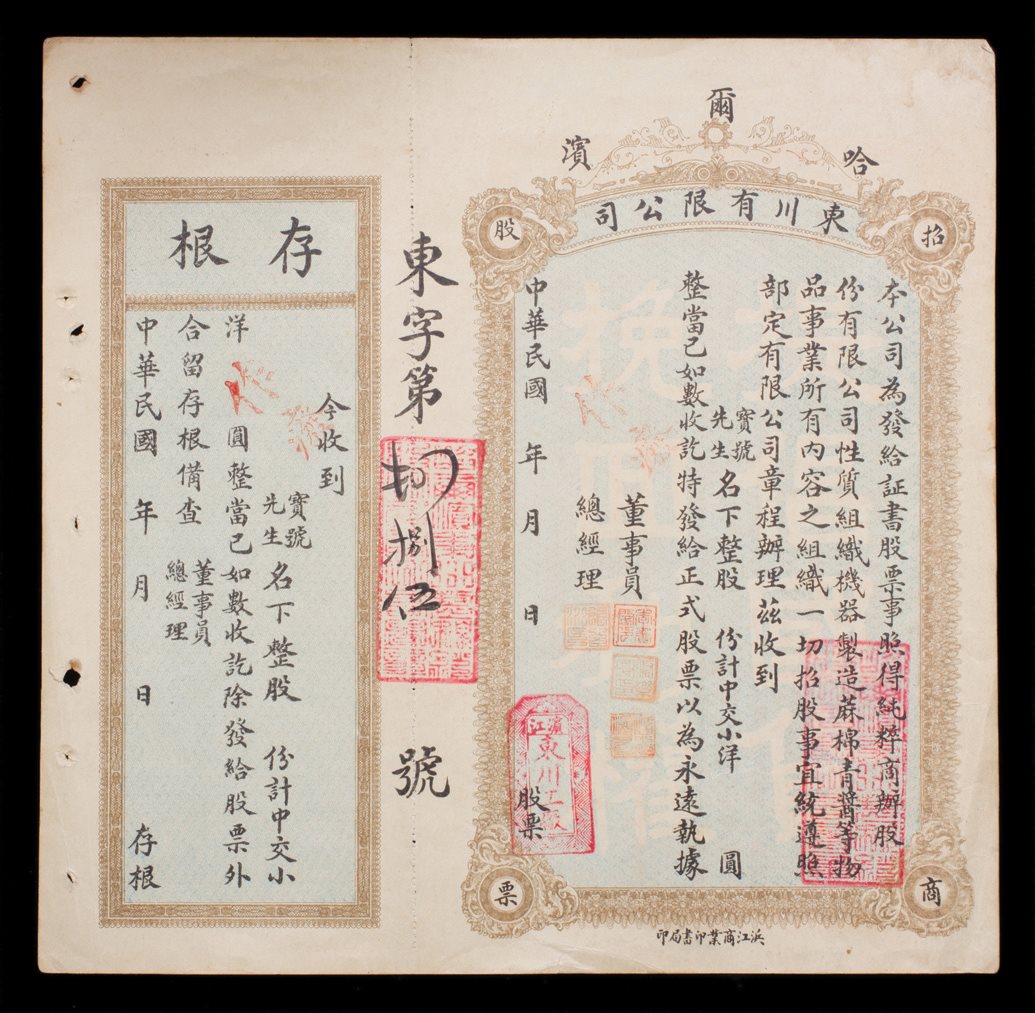 哈爾濱
東川有限公司
招商股票
本公司為發給証書股票事照得純粹商辦股
份有限公司性質組織機器製造蔴棉青醬等物
品事業所有內容之組織一切招股事宜統遵照
部定有限公司章程辦理茲收到
寶號
先生
名下整股 份計中交小洋 圓
整當已如數收訖特發給正式股票以為永遠執據
董事員
總經理
中華民國 年 月 日 股票
濱江
東川工廠
浜江商業印書局印
東字第 捌伍 號
存根
今收到
寶號
先生
名下整股 份計中交小
洋 圓整當已如數收訖除發給股票外
合留存根備查
董事員
總經理
中華民國 年 月 日 存根